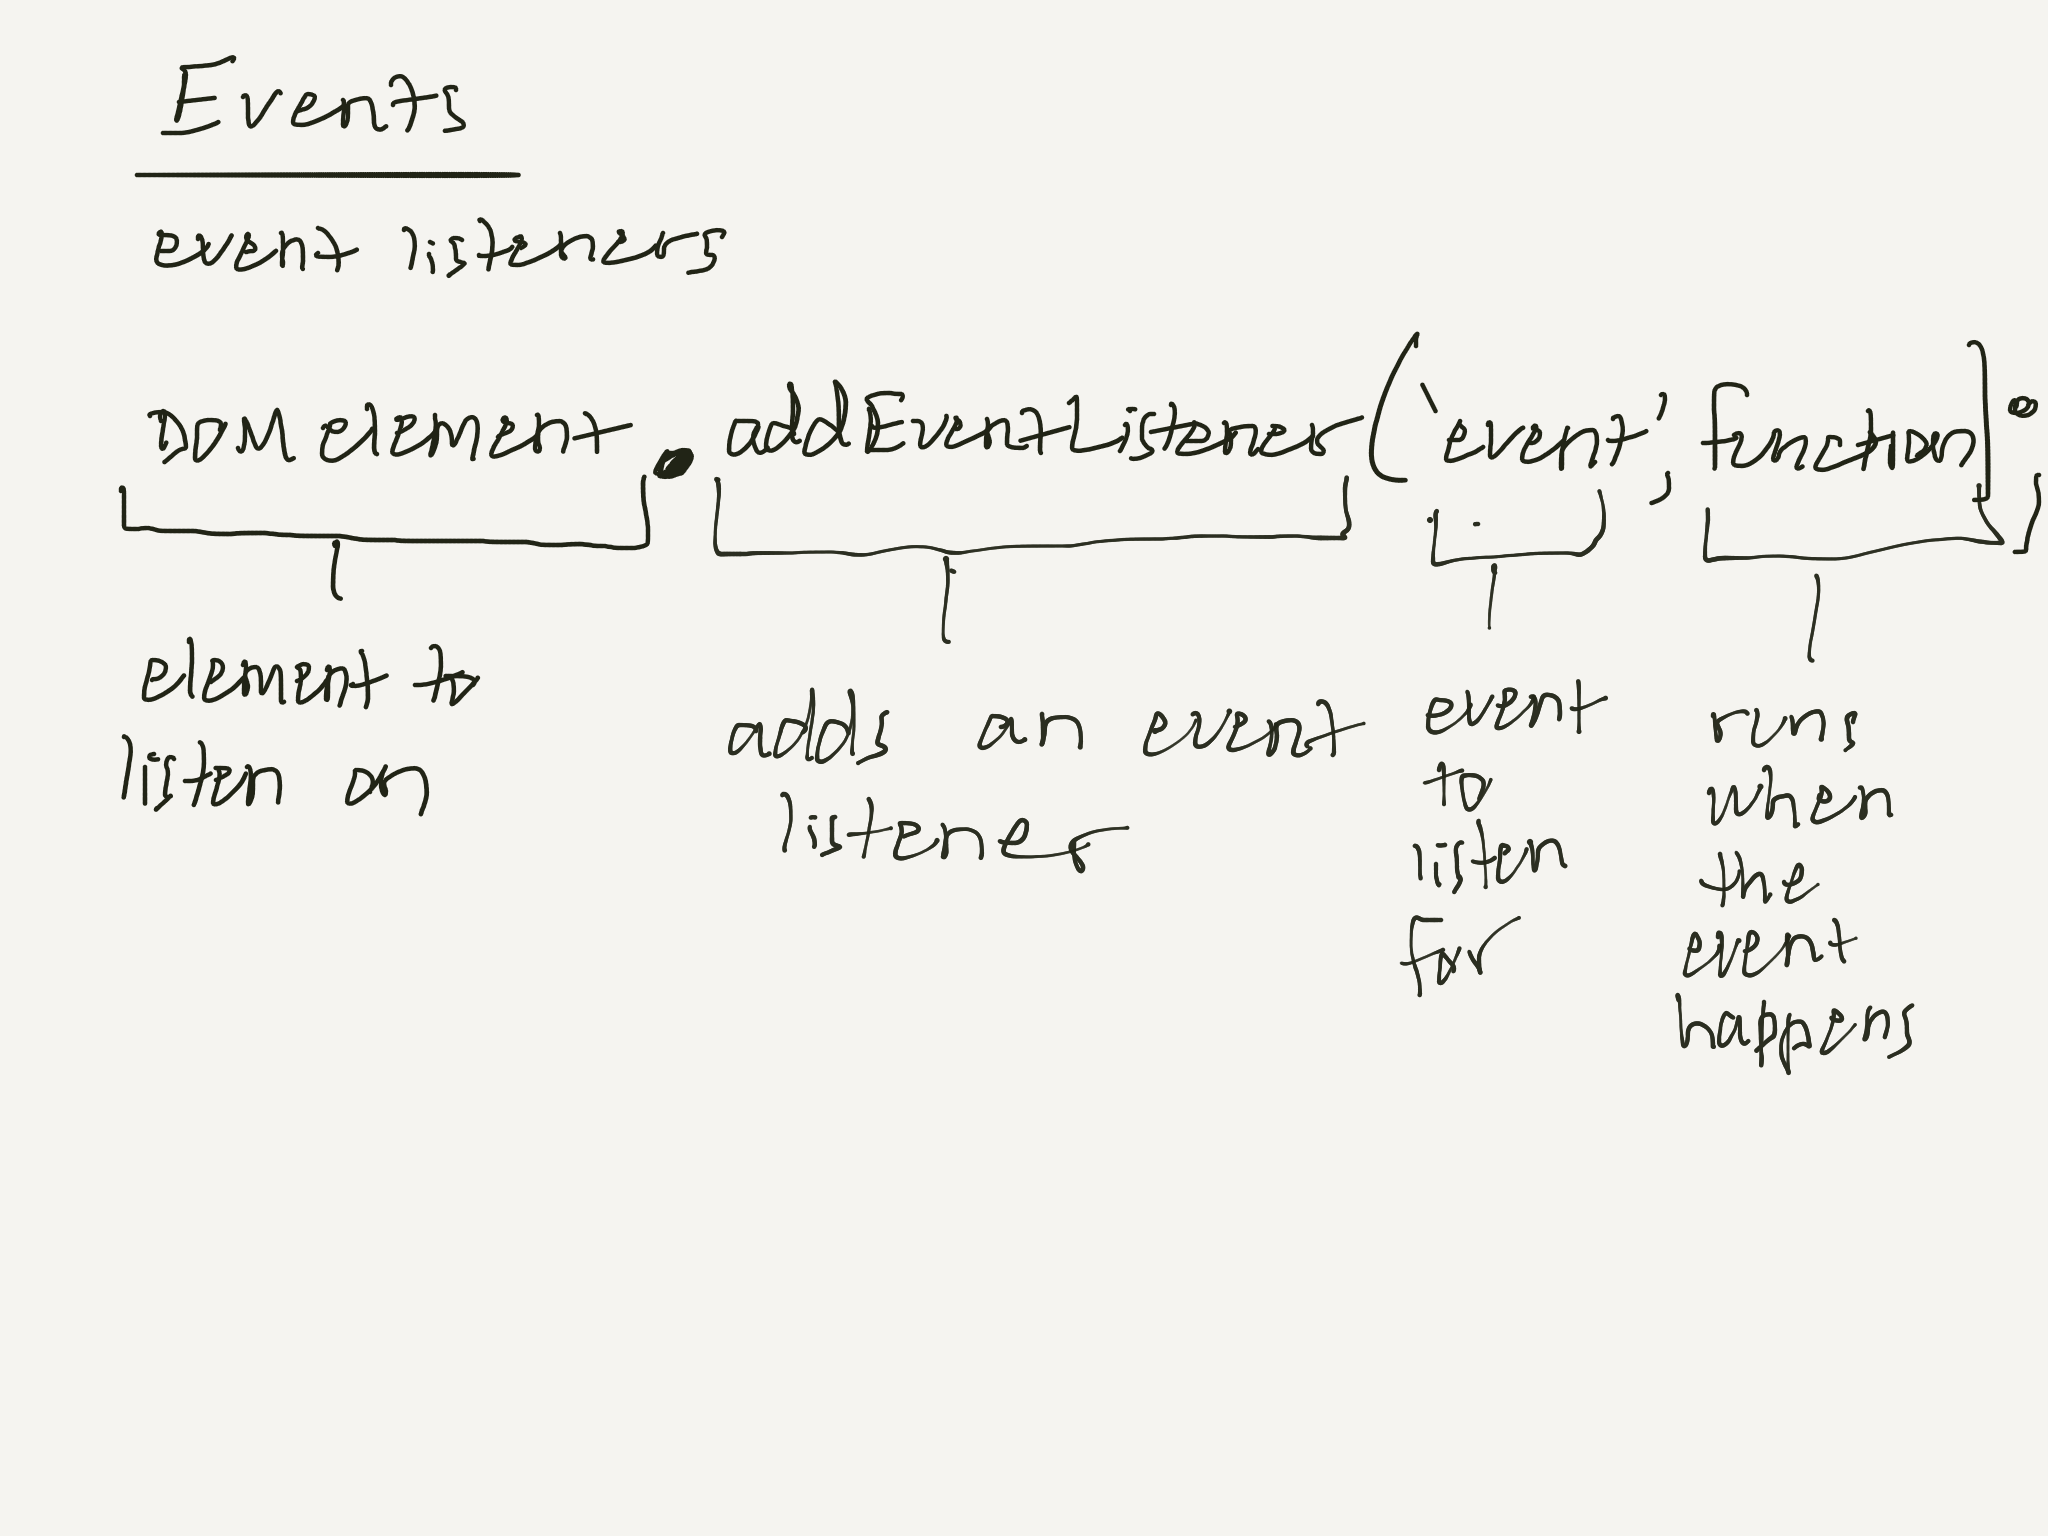 Events
event listeners
DOM element.addEventListener('event', function);
element to
listen on
adds an event
listener
event
to
listen
for
runs
when
the
event
happens